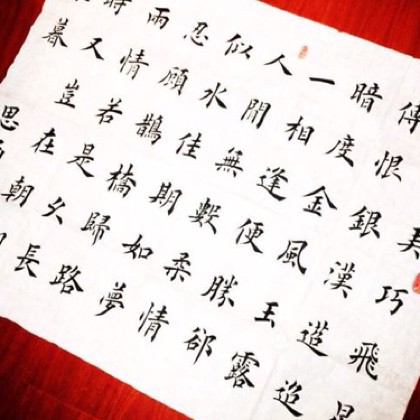 巧飛
傳恨銀漢迢迢
暗度金風玉露
一相逢便勝卻
人間無數柔情
似水佳期如夢
忍顧鵲橋歸路
雨情若是久長
時又豈在朝
暮
思